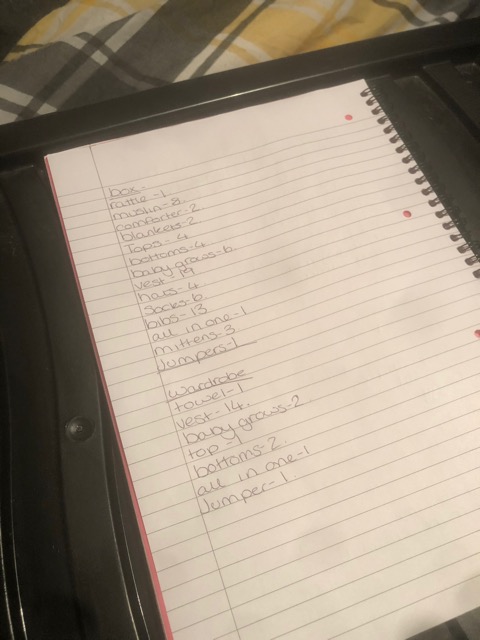 box-
rattle -1
muslin-8.
comforter-2
blankets-2
Tops- 4
bottoms-4
baby grows-6
vest -19
hats- 4
Socks-6
bibs-13
all in one-1
mittens-3
Jumpers-1
wardrobe
towel-1
vest-14.
baby grows-2
top -1
bottoms-2.
all in one-1
Jumper-1.